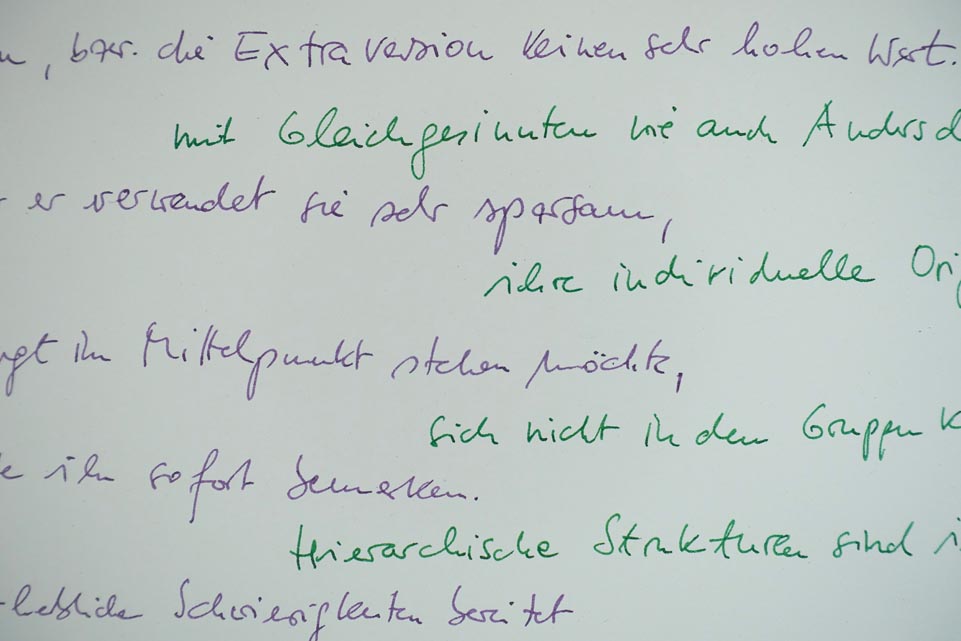 , bzw. die Extraversion keinen sehr hohen Wert.
mit Gleichgesinnten wie auch
er verwendet sie sehr sparsam,
ihre individuelle
im Mittelpunkt stehen möchte,
sich nicht in den Gruppen
ihn sofort bemerken.
Hierarchische Strukturen sind
Schwierigkeiten bereitet